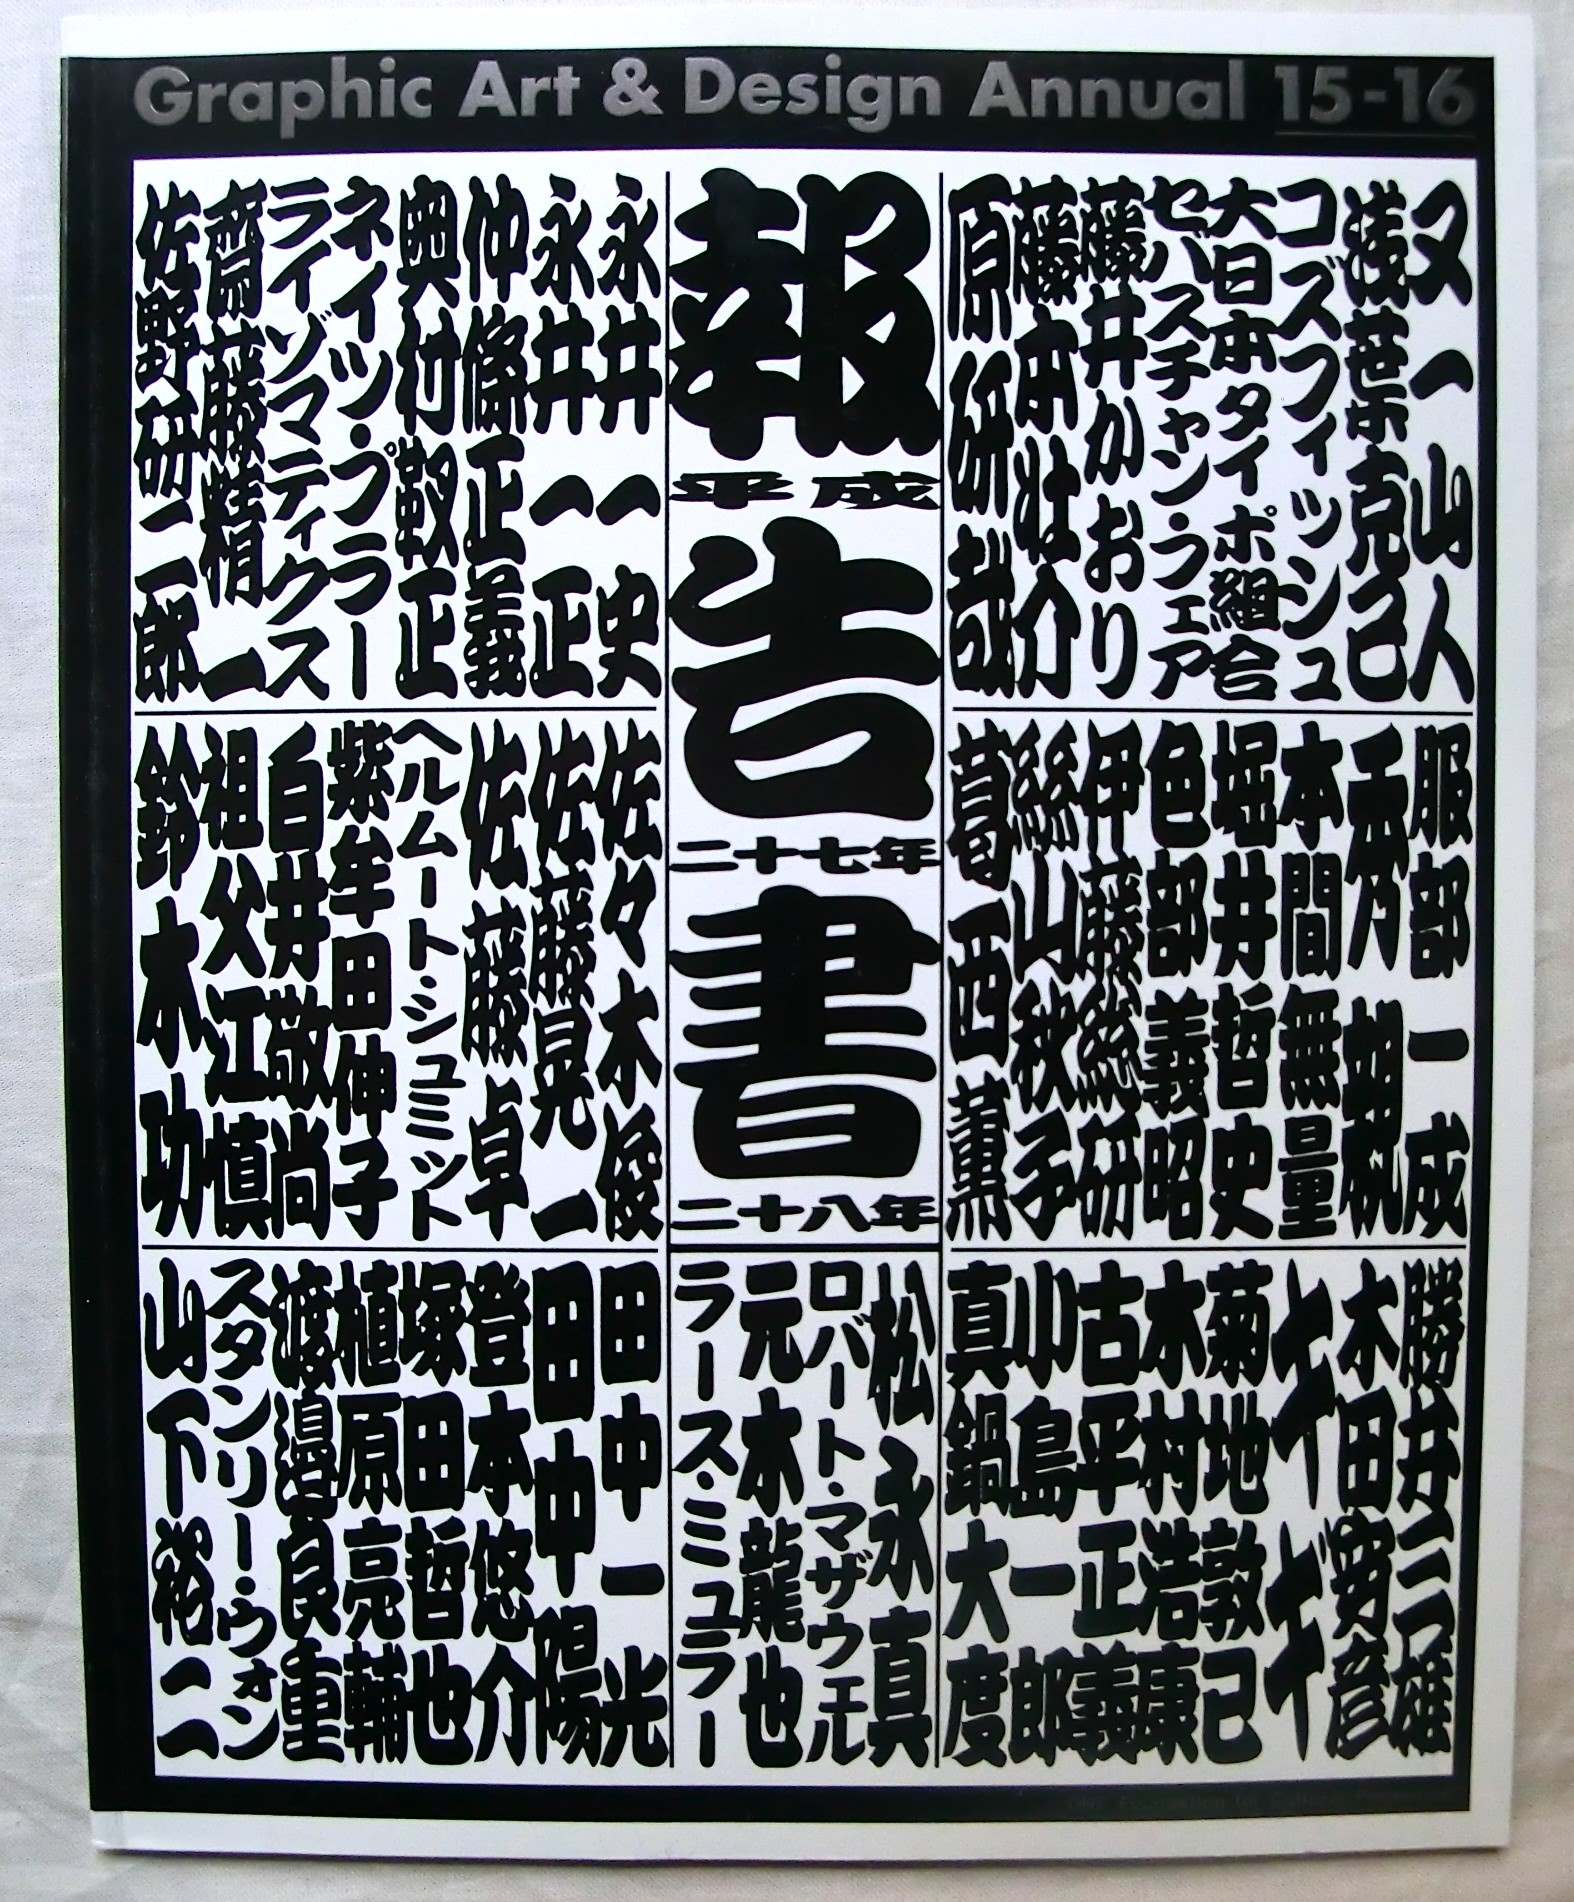 Graphic Art & Design Annual 15-16
報告書
平成
二十七年
二十八年
又一山人
浅葉克己
コズフィッシュ
大日本タイポ組合
セバスチャン・フェア
藤井かおり
藤本壮介
原研哉
服部一成
秀親
本間無量
堀井哲史
色部義昭
伊藤総研
絲山秋子
葛西薫
勝井三雄
木田安彦
キギ
菊地敦己
木村浩康
古平正義
小島一郎
真鍋大度
松永真
ロバート・マザウエル
元木龍也
ラース・ミュラー
永井一史
永井一正
仲條正義
奥村靫正
ネイツ・プラー
ライゾマティクス
齋藤精一
佐野研二郎
佐々木俊
佐藤晃一
佐藤卓
ヘルムート・シュミット
紫牟田伸子
白井敬尚
祖父江慎
鈴木功
田中一光
田中陽
登本悠介
塚田哲也
植原亮輔
渡邉良重
スタンリー・ウォン
山下裕二